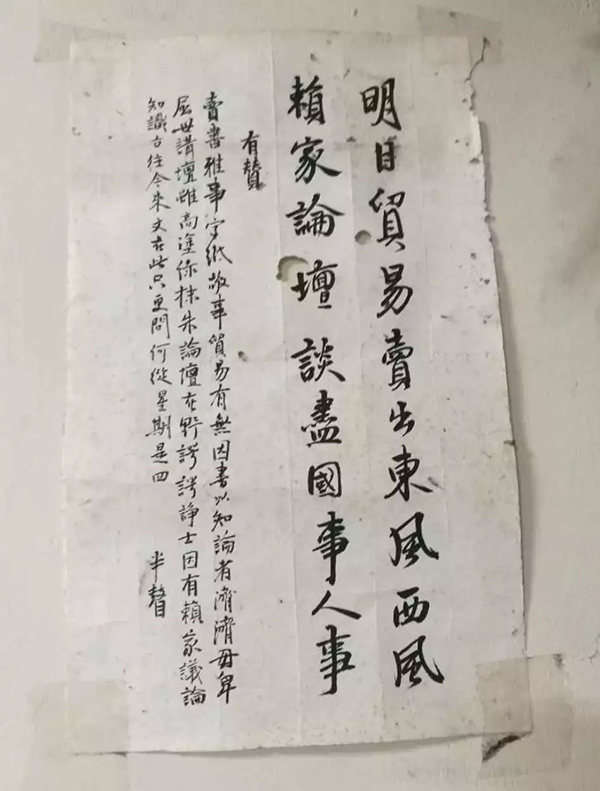 明日貿易賣出東風西風
賴家論壇談盡國事人事
有贊
賣書雅事字紙故事貿易有無因書以知論者濟濟毋卑
屈世講壇雖高塗抹朱論壇在野諤諤諍士因有賴家議論
知識古往今來文在此只更問何從星期是四
半聾